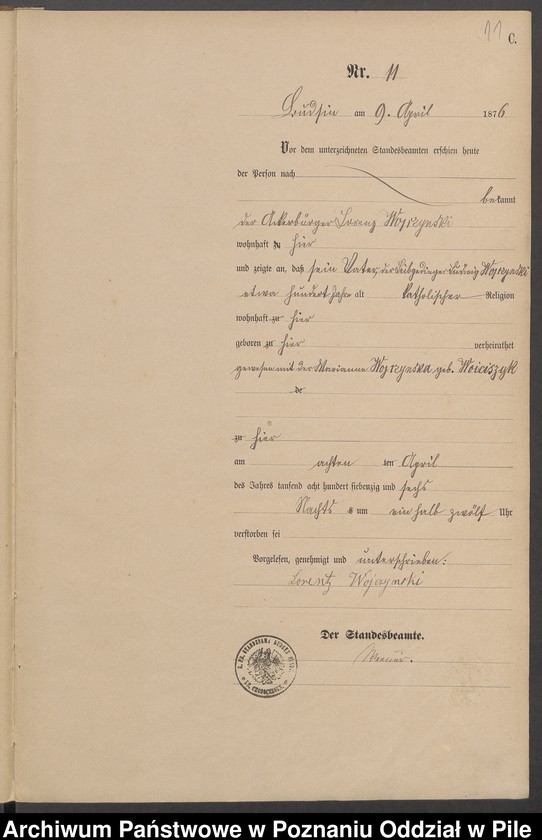 11
C.
Nr. 11
Budsin am 9. April 1876
Vor dem unterzeichneten Standesbeamten erschien heute
der Person nach
bekannt
der Ackerbürger Lorenz Wojczynski
wohnhaft zu hier
und zeigte an, daß sein Vater, der Leibgedinger Ludwig Wojczynski
etwa hundert Jahre alt katholischer Religion
wohnhaft zu hier
geboren zu hier verheirathet
gewesen mit der Marianne Wojczynska geb. Woiciszyk
de
zu hier
am achten ten April
des Jahres tausend acht hundert siebenzig und sechs
Nachts um ein halb zwölf Uhr
verstorben sei
Vorgelesen, genehmigt und unterschrieben:
Lorentz Wojczynski
Der Standesbeamte.
Archiwum Państwowe w Poznaniu Oddział w Pile